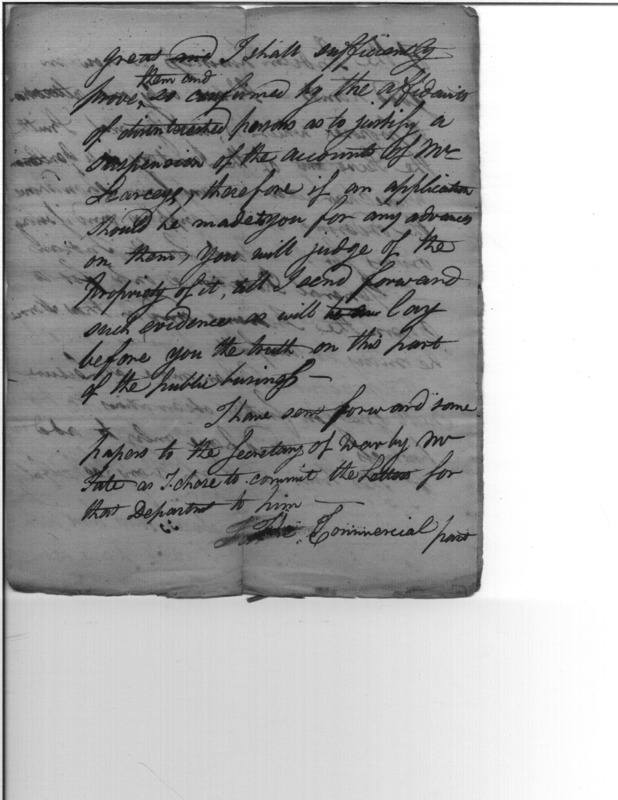 great and, I shall sufficiently
them and
prove, so confirmed by the affidavits
of disinterested persons as to justify a
suspension of the accounts of Mr
therefore if an application
should be made to you for any advances
on them, you will judge of the
propriety of it, till I send forward
such evidence as will lay
before you the truth on this part
of the public business —
I have sent forward some
papers to the Secretary of War by Mr
as I chose to commit the Letters for
that Departmt to him —
The Commercial part